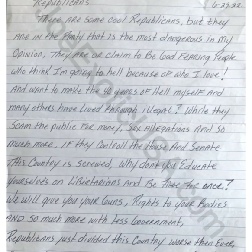 Republicans 6-25-22
There are some cool Republicans, but they
are in the Party that is the most dangerous in My
Opinion, They are or claim to be God Fearing People
who think I'm going to hell because of who I love!
And want to make the 40 years of Hell myself and
many others have Lived through illegal? While they
Scam the public For money, Sex Allegations And so
much more. if they Control the House And Senate
This Country is Screwed, Why don't you Educate
Yourselves on Libertarians and Be Free For once?
We will give you your Guns, Rights to your Bodies
AND so much more with less Government,
Republicans just divided this Country worse then Ever